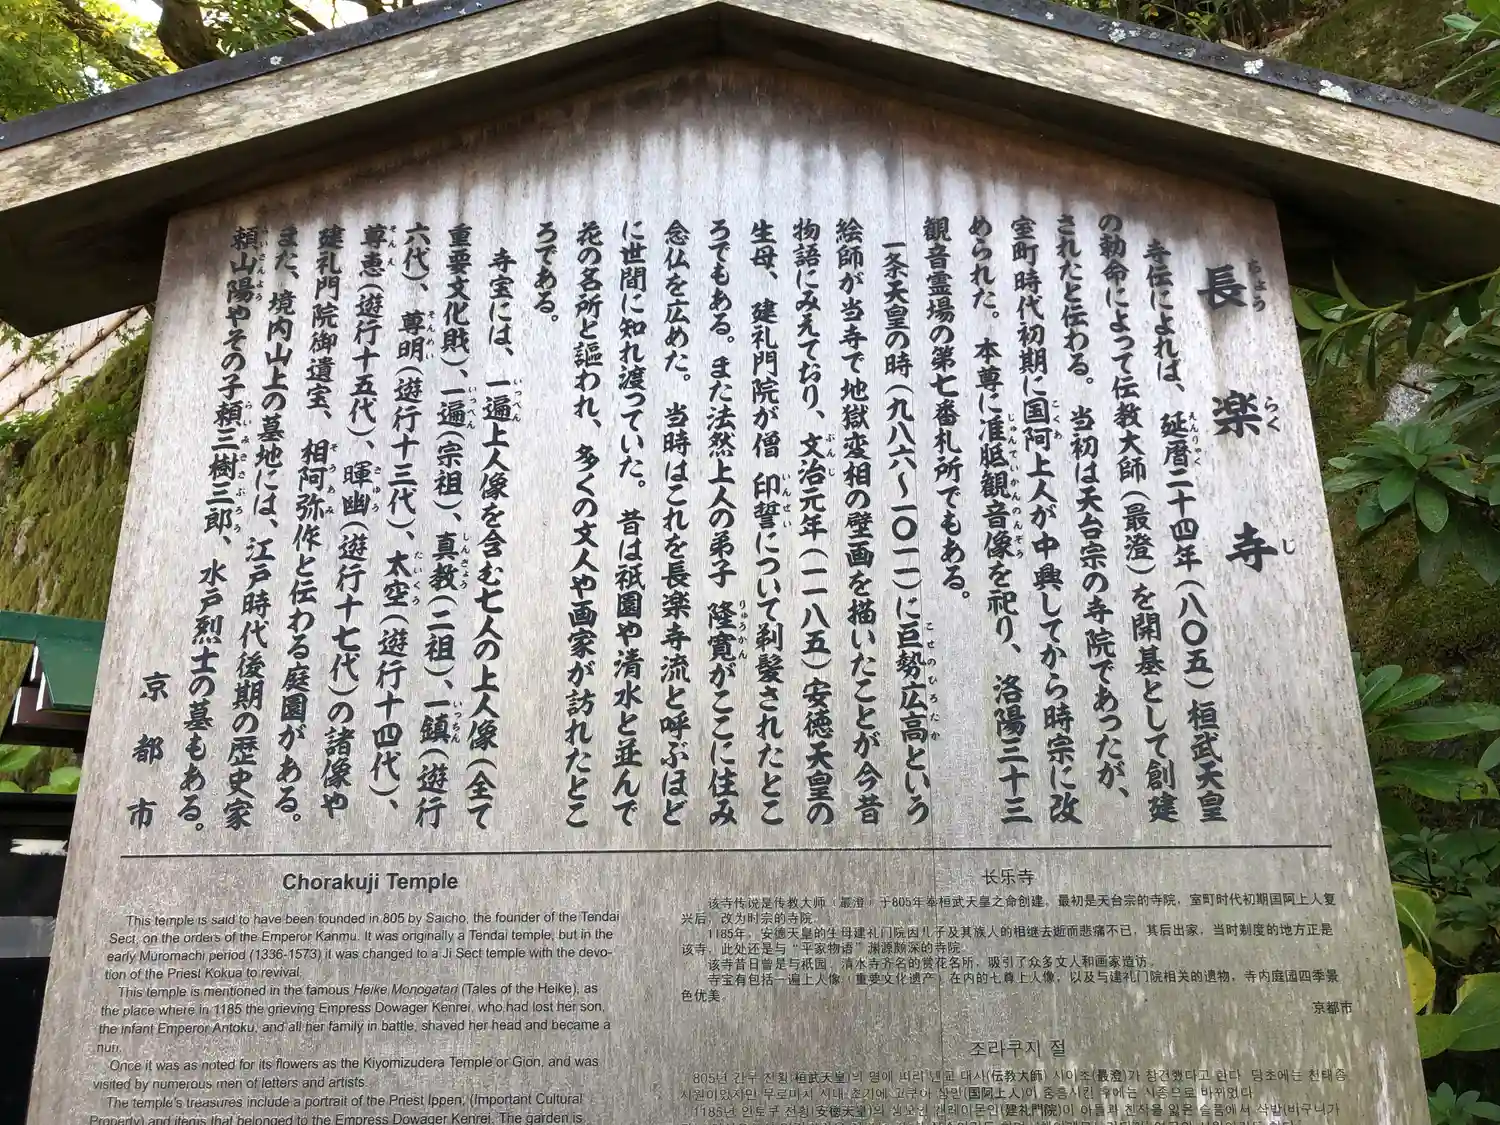 長楽寺
ちょうらくじ
寺伝によれば、延暦二十四年(八〇五)桓武天皇
の勅命によって伝教大師(最澄)を開基として創建
されたと伝わる。当初は天台宗の寺院であったが、
室町時代初期に国阿上人が中興してから時宗に改
められた。本尊に准胝観音像を祀り、洛陽三十三
観音霊場の第七番札所でもある。
一条天皇の時(九八六〜一〇一一)に巨勢広高という
絵師が当寺で地獄変相の壁画を描いたことが今昔
物語にみえており、文治元年(一一八五)安徳天皇の
生母、建礼門院が僧 印誓について剃髪されたとこ
ろでもある。また法然上人の弟子 隆寛がここに住み
念仏を広めた。当時はこれを長楽寺流と呼ぶほど
に世間に知れ渡っていた。昔は祇園や清水と並んで
花の名所と謳われ、多くの文人や画家が訪れたとこ
ろである。
寺宝には、一遍上人像を含む七人の上人像(全て
重要文化財)、一遍(宗祖)、真教(二祖)、一鎮(遊行
六代)、尊明(遊行十三代)、太空(遊行十四代)、
尊恵(遊行十五代)、暉幽(遊行十七代)の諸像や
建礼門院御遺宝、相阿弥作と伝わる庭園がある。
また、境内山上の墓地には、江戸時代後期の歴史家
頼山陽やその子頼三樹三郎、水戸烈士の墓もある。
京都市
Chorakuji Temple
This temple is said to have been founded in 805 by Saicho, the founder of the Tendai
Sect, on the orders of the Emperor Kanmu. It was originally a Tendai temple, but in the
early Muromachi period (1336-1573) it was changed to a Ji Sect temple with the devo-
tion of the Priest Kokua to revival.
This temple is mentioned in the famous Heike Monogatari (Tales of the Heike), as
the place where in 1185 the grieving Empress Dowager Kenrei, who had lost her son,
the infant Emperor Antoku, and all her family in battle, shaved her head and became a
nun.
Once it was as noted for its flowers as the Kiyomizudera Temple or Gion, and was
visited by numerous men of letters and artists.
The temple's treasures include a portrait of the Priest Ippen, (Important Cultural
Property) and items that belonged to the Empress Dowager Kenrei. The garden is
长乐寺
该寺传说是传教大师（最澄）于805年奉桓武天皇之命创建，最初是天台宗的寺院，室町时代初期国阿上人复
兴后，改为时宗的寺院。
1185年，安德天皇的生母建礼门院因儿子及其族人的相继去逝而悲痛不已，其后出家，当时剃度的地方正是
该寺，此处还是与“平家物语”渊源颇深的寺院。
该寺昔日曾是与祇园、清水寺齐名的赏花名所，吸引了众多文人和画家造访。
寺宝有包括一遍上人像（重要文化遗产）在内的七尊上人像，以及与建礼门院相关的遗物，寺内庭园四季景
色优美。
京都市
조라쿠지 절
805년 간무 천황(桓武天皇)의 명에 따라 덴교 대사(伝教大師) 사이초(最澄)가 창건했다고 한다. 당초에는 천태종
사원이었지만 무로마치 시대 초기에 고쿠아 상인(国阿上人)이 중흥시킨 후에는 시종으로 바뀌었다.
1185년 안토쿠 천황(安徳天皇)의 생모인 겐레이몬인(建礼門院)이 아들과 친지를 잃은 슬픔에서 삭발(비구니가